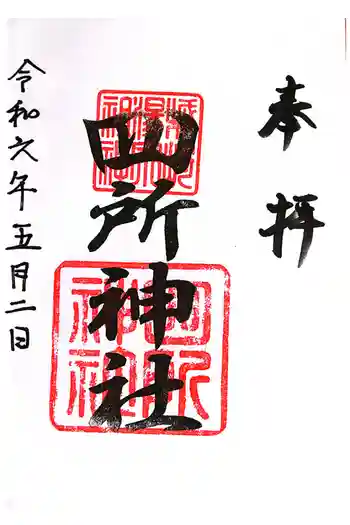 奉拝
四所神社
四所神社
令和六年五月二日